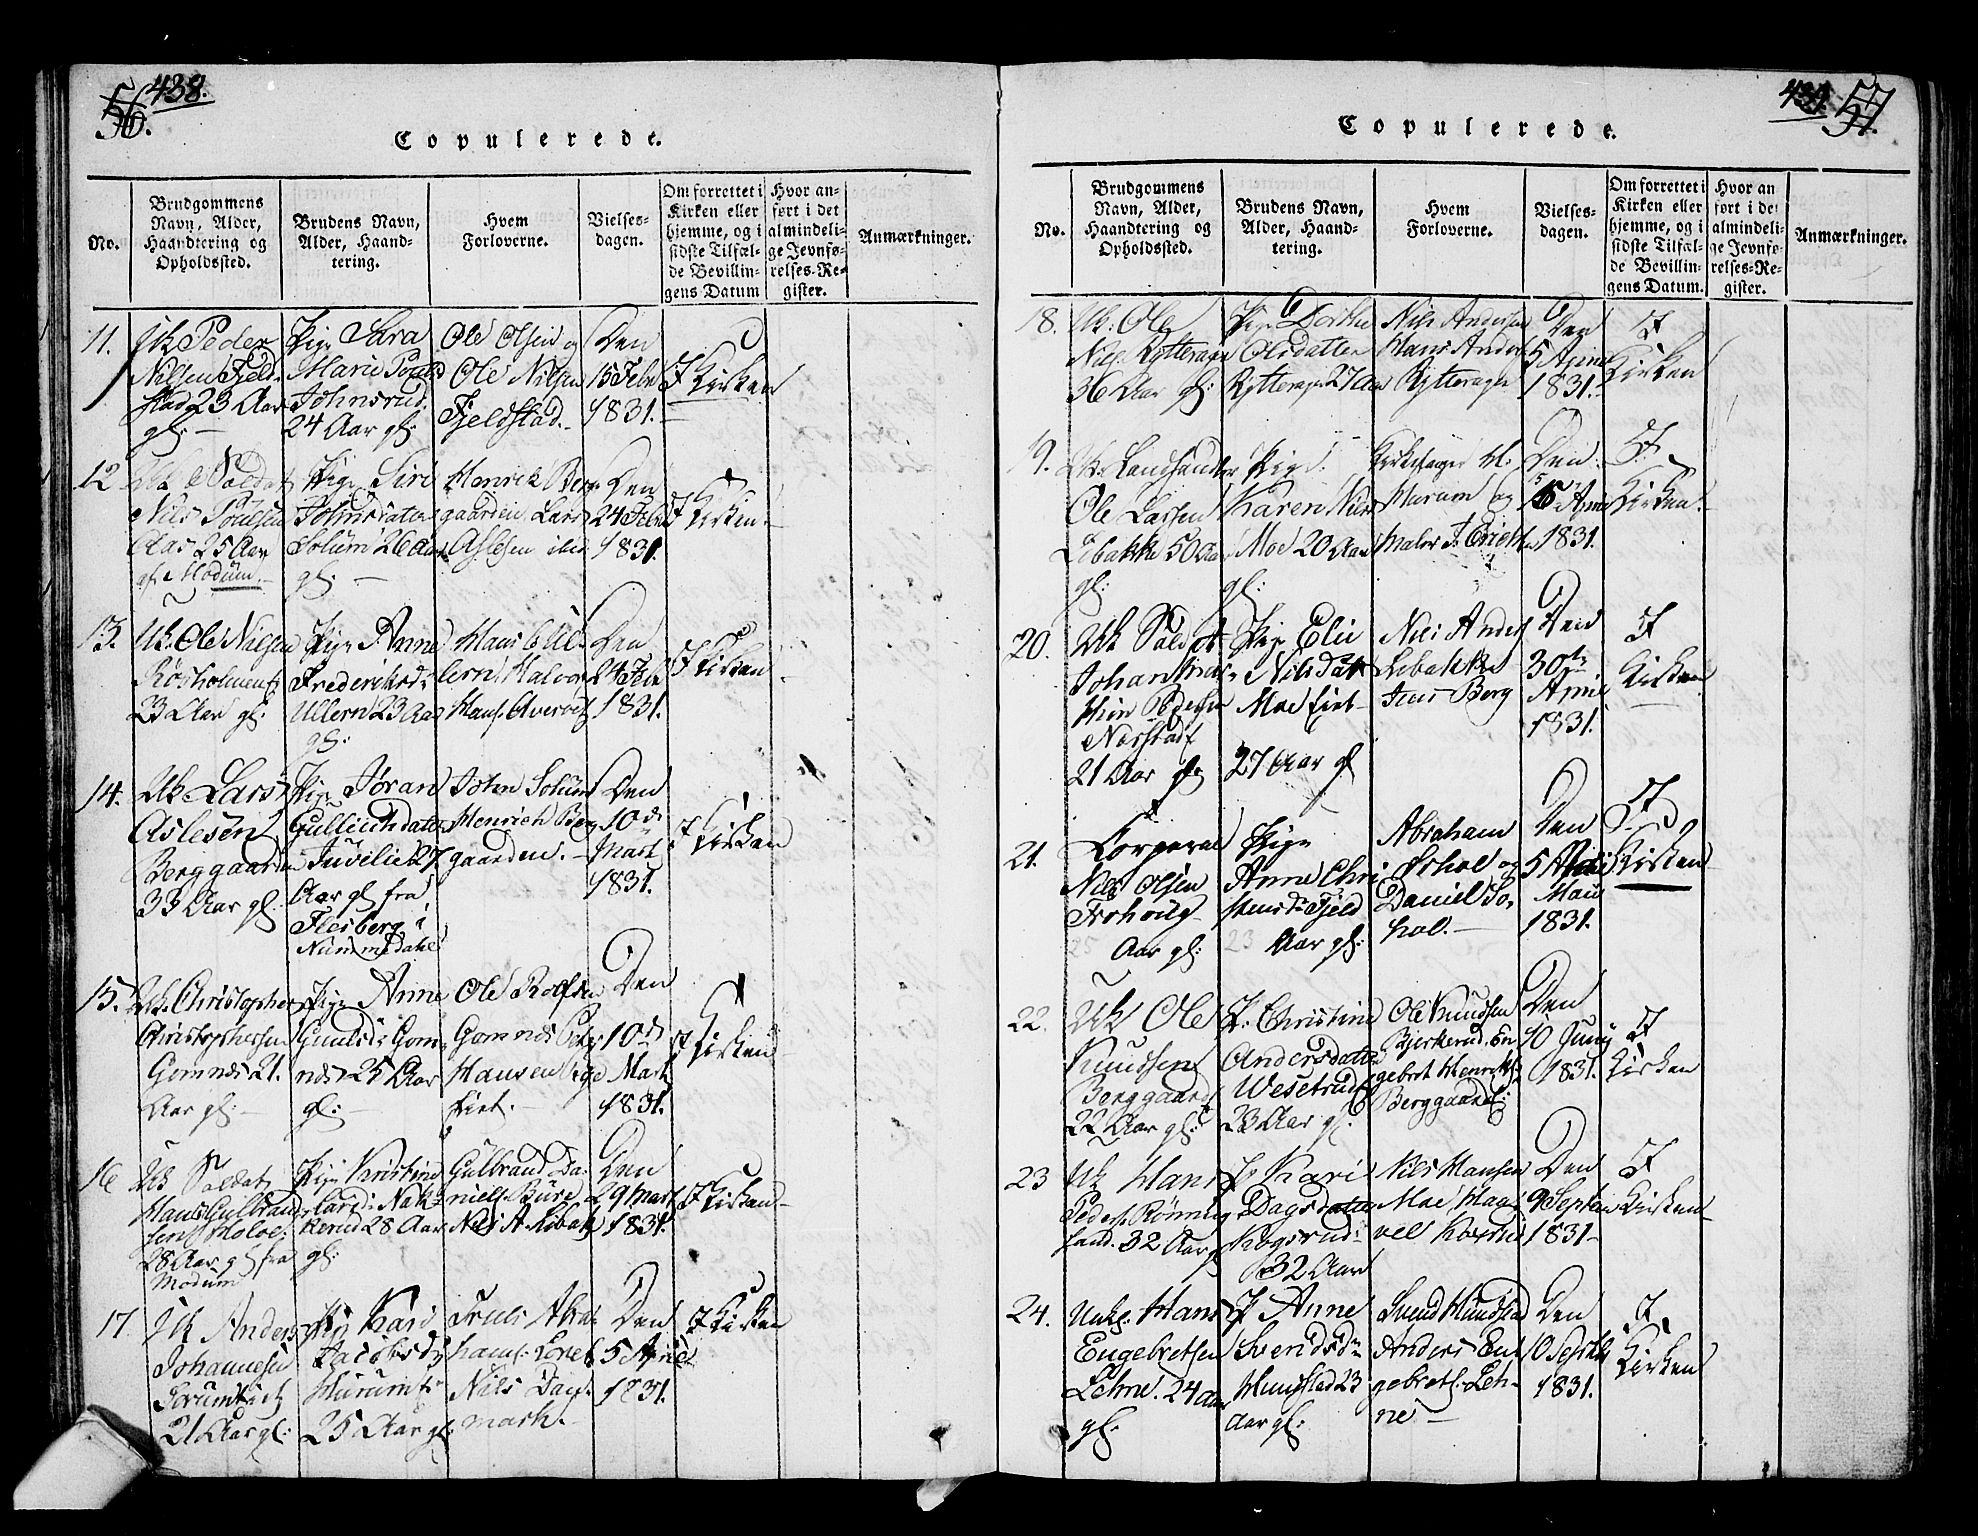 56. 438.
Copulerede.
No.
Brudgommens
Navn, Alder,
Haandtering og
Opholdssted.
Brudens Navn,
Alder, Haand-
tering.
Hvem
Forloverne.
Vielses-
dagen.
Om forrettet i
Kirken eller
hjemme, og i
sidste Tilfæl-
de Bevillin-
gens Datum
Hvor an-
ført i det
almindeli-
ge Jevnfø-
relses-Re-
gister.
Anmærkninger.
11.
Uk Peder
Nilsen Fjeld-
stad 23 Aar
gl: —
Pige Sara
Marie Pouls
Johnsrud
24 Aar gl:
Ole Olsen og
Ole Nilsen
Fjeldstad.
Den
15 Febr
1831.
I Kirken
12
Uk Soldat
Nils Poulsen
Aas 25 Aar
af Modum.
Pige Siri
Johnsdater
Solum 26 Aar
gl: —
Henrich Berg-
gaarden Lars
Aslesen ibid
Den
24 Febr
1831.
I Kirken.
13.
Uk. Ole Nilsen
Røsholmen
23 Aar gl:
Pige Anne
Frederiksd:
Ullern 23 Aar
gl:
Hans Ul-
lern Halvor
Hans.
Den
24 Febr
1831.
I Kirken
14.
Uk Lars
Aslesen
Berggaarden
33 Aar gl:
Pige Jøran
Gullichdater
Juvelie 27
Aar gl fra
Flesberg i
Nummedahl
John Solum
Henrich Berg
gaarden. —
Den
10de
Mart
1831.
I Kirken
15.
Uk. Christopher
Christophersen
Gomnes 21.
Aar gl: —
Pige Anne
Gunilsd: Gom-
nes 25 Aar
gl: —
Ole Rolfsen
Gomnes
Hansen
Eiet. —
Den
10de
Mart
1831.
I Kirken
16
Uk Soldat
Hans Gulbrand-
sen Holoe:
28 Aar gl fra
Modum
Pige Kristine
Larsd: Nak-
kerud 28 Aar
gl:
Gulbrand Da-
niels. Bure
Nils A Libak
Den
29 Mart
1831.
I Kirken
17
Uk Anders
Johannesen
21 Aar gl:
Pige Kari
Jacobsd:
Hurum
25 Aar gl
Truls Abra-
hams:
Nils Dan-
mark.
Den
5 April
1831.
I Kirken
439. 57.
Copulerede.
No.
Brudgommens
Navn, Alder,
Haandtering og
Opholdssted.
Brudens Navn,
Alder, Haand-
tering.
Hvem
Forloverne.
Vielses-
dagen.
Om forrettet i
Kirken eller
hjemme, og i
sidste Tilfæl-
de Bevillin-
gens Datum.
Hvor an
ført i det
almindeli-
ge Jevnfø-
relses-Re-
gister.
Anmærkninger.
18.
Uk: Ole
Niels. Rytterager
36 Aar gl:
Pige Dorthe
Olsdatter
Rytterager 27 Aar
Nils Andersen
Hans Anders
Rytterager
Den
5 April
1831.
I
Kirken
19.
Uk: Landhandler
Ole Larsen
Libakke 50 Aar
gl:
Pige
Karen Nils
Moe 20 Aar
gl:
Kirkesanger H:
Hurum og
Maler J. Erichs
Den
5 April
1831.
I
Kirken.
20.
Uk Soldat
Johan Fried-
Pedersen
Norstad
21 Aar gl:
Pige Elie
Nilsdatt
Moe Eiet
27 Aar gl
Nils Anders
Libakke
Jens Berg
Den
30te
April
1831.
I
Kirken
21.
Corporal
Nils Olsen
Frohoug
25 Aar gl:
Pige
Anne Chri
stensd: Fjeld
23 Aar gl:
Abraham
Sørhol og
Daniel Sø-
hol. —
Den
5
Mai
1831.
I
Kirken
22.
Uk Ole
Knudsen
Berggaard
22 Aar gl:
P: Christine
Andersdatter
Wesetrud
23 Aar gl.
Ole Knudsen
Bjerkerud. En
gebret Henriks
Berggaard:
Den
10 Juny
1831.
I
Kirken
23
Uk Hans
Peders. Rønning-
sand. 32 Aar gl
P Kari
Dagsdatter
Kogsrud
32 Aar
Nils Hansen
Moe Hans
vel
Den
9 Septem
1831—
I
Kirken
24.
Unkg: Hans
Engebretsen
Lehne. 24 Aar
gl.
P Anne
Svendsdr
Hungstad 23
Aar gl:
Svend Hungstad
Anders En-
gebrets. Leh-
ne —
Den
10 Septbr
1831.
I
Kirken